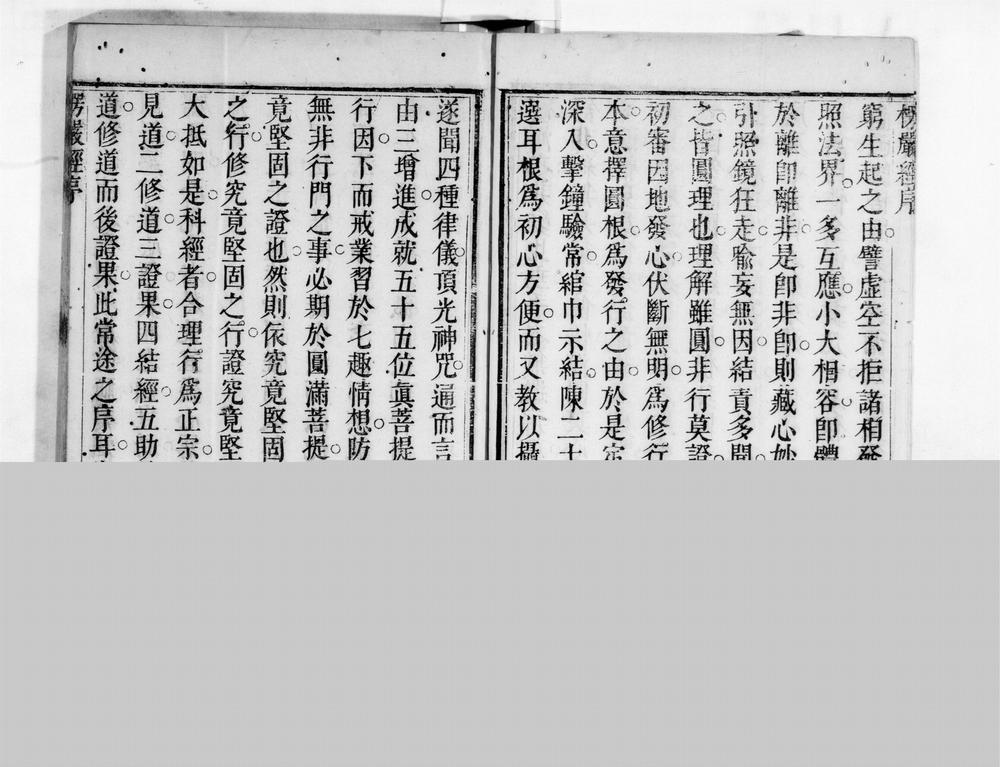 楞嚴經序
窮生起之由。譬虛空不拒諸相發
照法界。一多互應。小大相容。卽體
於離卽離非。是卽非卽。則藏心妙
引照鏡狂走。喻妄無因。結責多聞
之。皆圓理也。理解雖圓。非行莫證
初審因地發心。伏斷無明。爲修行
本意。擇圓根。爲發行之由。於是
深入。擊鐘驗常。綰巾示結。陳二十
選耳根爲初心方便。而又教以攝
遂聞四種律儀。頂光神咒。通而言
由三增進。成就五十五位眞菩提
行。因下而戒業習於七趣情想。防
無非行門之事。必期於圓滿菩提。
竟堅固之證也。然則依究竟堅固
之行。修究竟堅固之行。證究竟堅
大抵如是。科經者。合理行爲正宗。
見道。二修道。三證果。四結經。五助
道。修道而後證果。此常途之序耳。
楞嚴經序